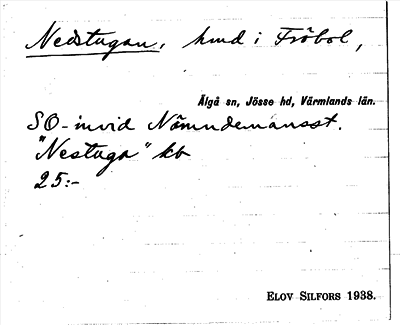 Nedstugan, hmd i Fröbol,
Älgå sn, Jösse hd, Värmlands län.
SO-invid Nämndemansst.
"Nestuga" kb
25:-
ELOV SILFORS 1938.